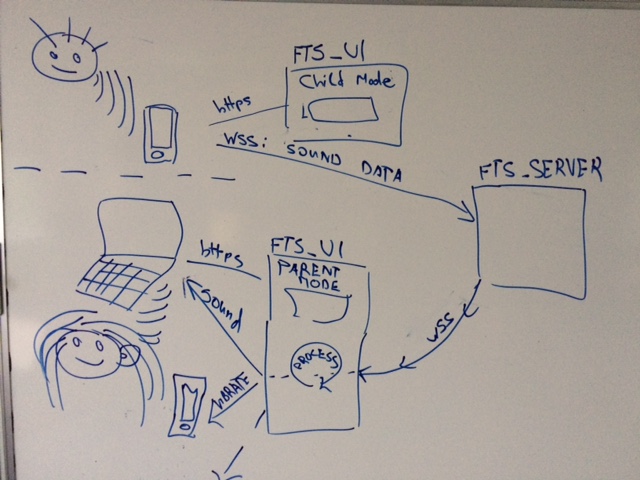 FTS_UI
Child Mode
https
WSS: SOUND DATA
FTS_SERVER
https
FTS_UI
PARENT MODE
Sound
WSS
PROCESS
VIBRATE